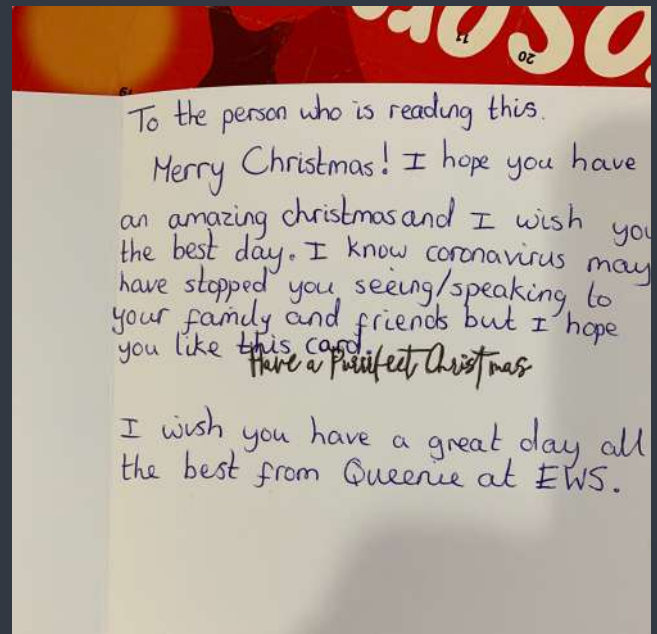 11
20
19
To the person who is reading this.
Merry Christmas! I hope you have
an amazing christmas and I wish you
the best day. I know coronavirus may
have stopped you seeing/speaking to
your family and friends but I hope
you like this card.
Have a Purrrfect Christmas
I wish you have a great day all
the best from Queenie at EWS.